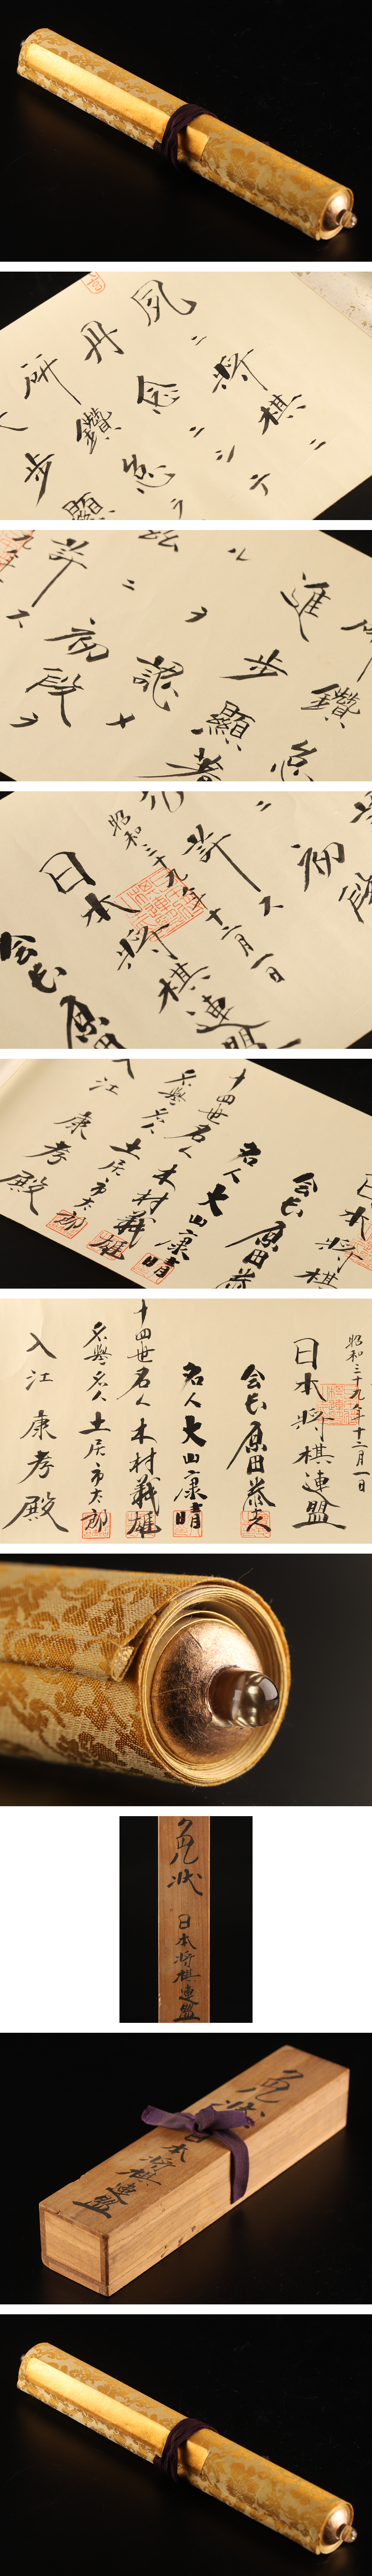 夙ニ将棋ニ
丹念ニシテ
研鑽怠ラ
歩顕
鑽怠
進歩顕著
ルヲ認
ニ初段ヲ
許ス
初段
許ス
昭和三十九年十二月一日
日本将棋連盟
会長 原田
日本将棋
会長 原田泰
名人 大山康晴
十四世名人 木村義雄
名誉名人 土居市太郎
入江康孝殿
昭和三十九年十二月一日
日本将棋連盟
会長 原田泰夫
名人 大山康晴
十四世名人 木村義雄
名誉名人 土居市太郎
入江康孝殿
免状 日本将棋連盟
免状 日本将棋連盟